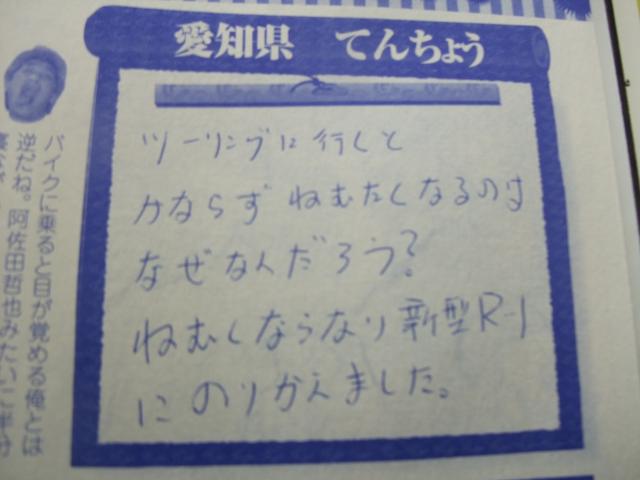 愛知県 てんちょう
ツーリングに行くと
かならずねむたくなるのは
なぜなんだろう?
ねむくならない新型R-1
にのりかえました。
バイクに乗ると目が覚める俺とは
逆だね。阿佐田哲也みたいに半分